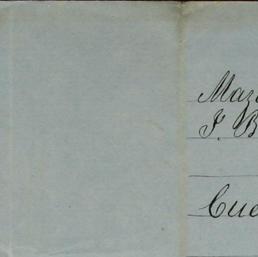 Maz
J. B
Cue